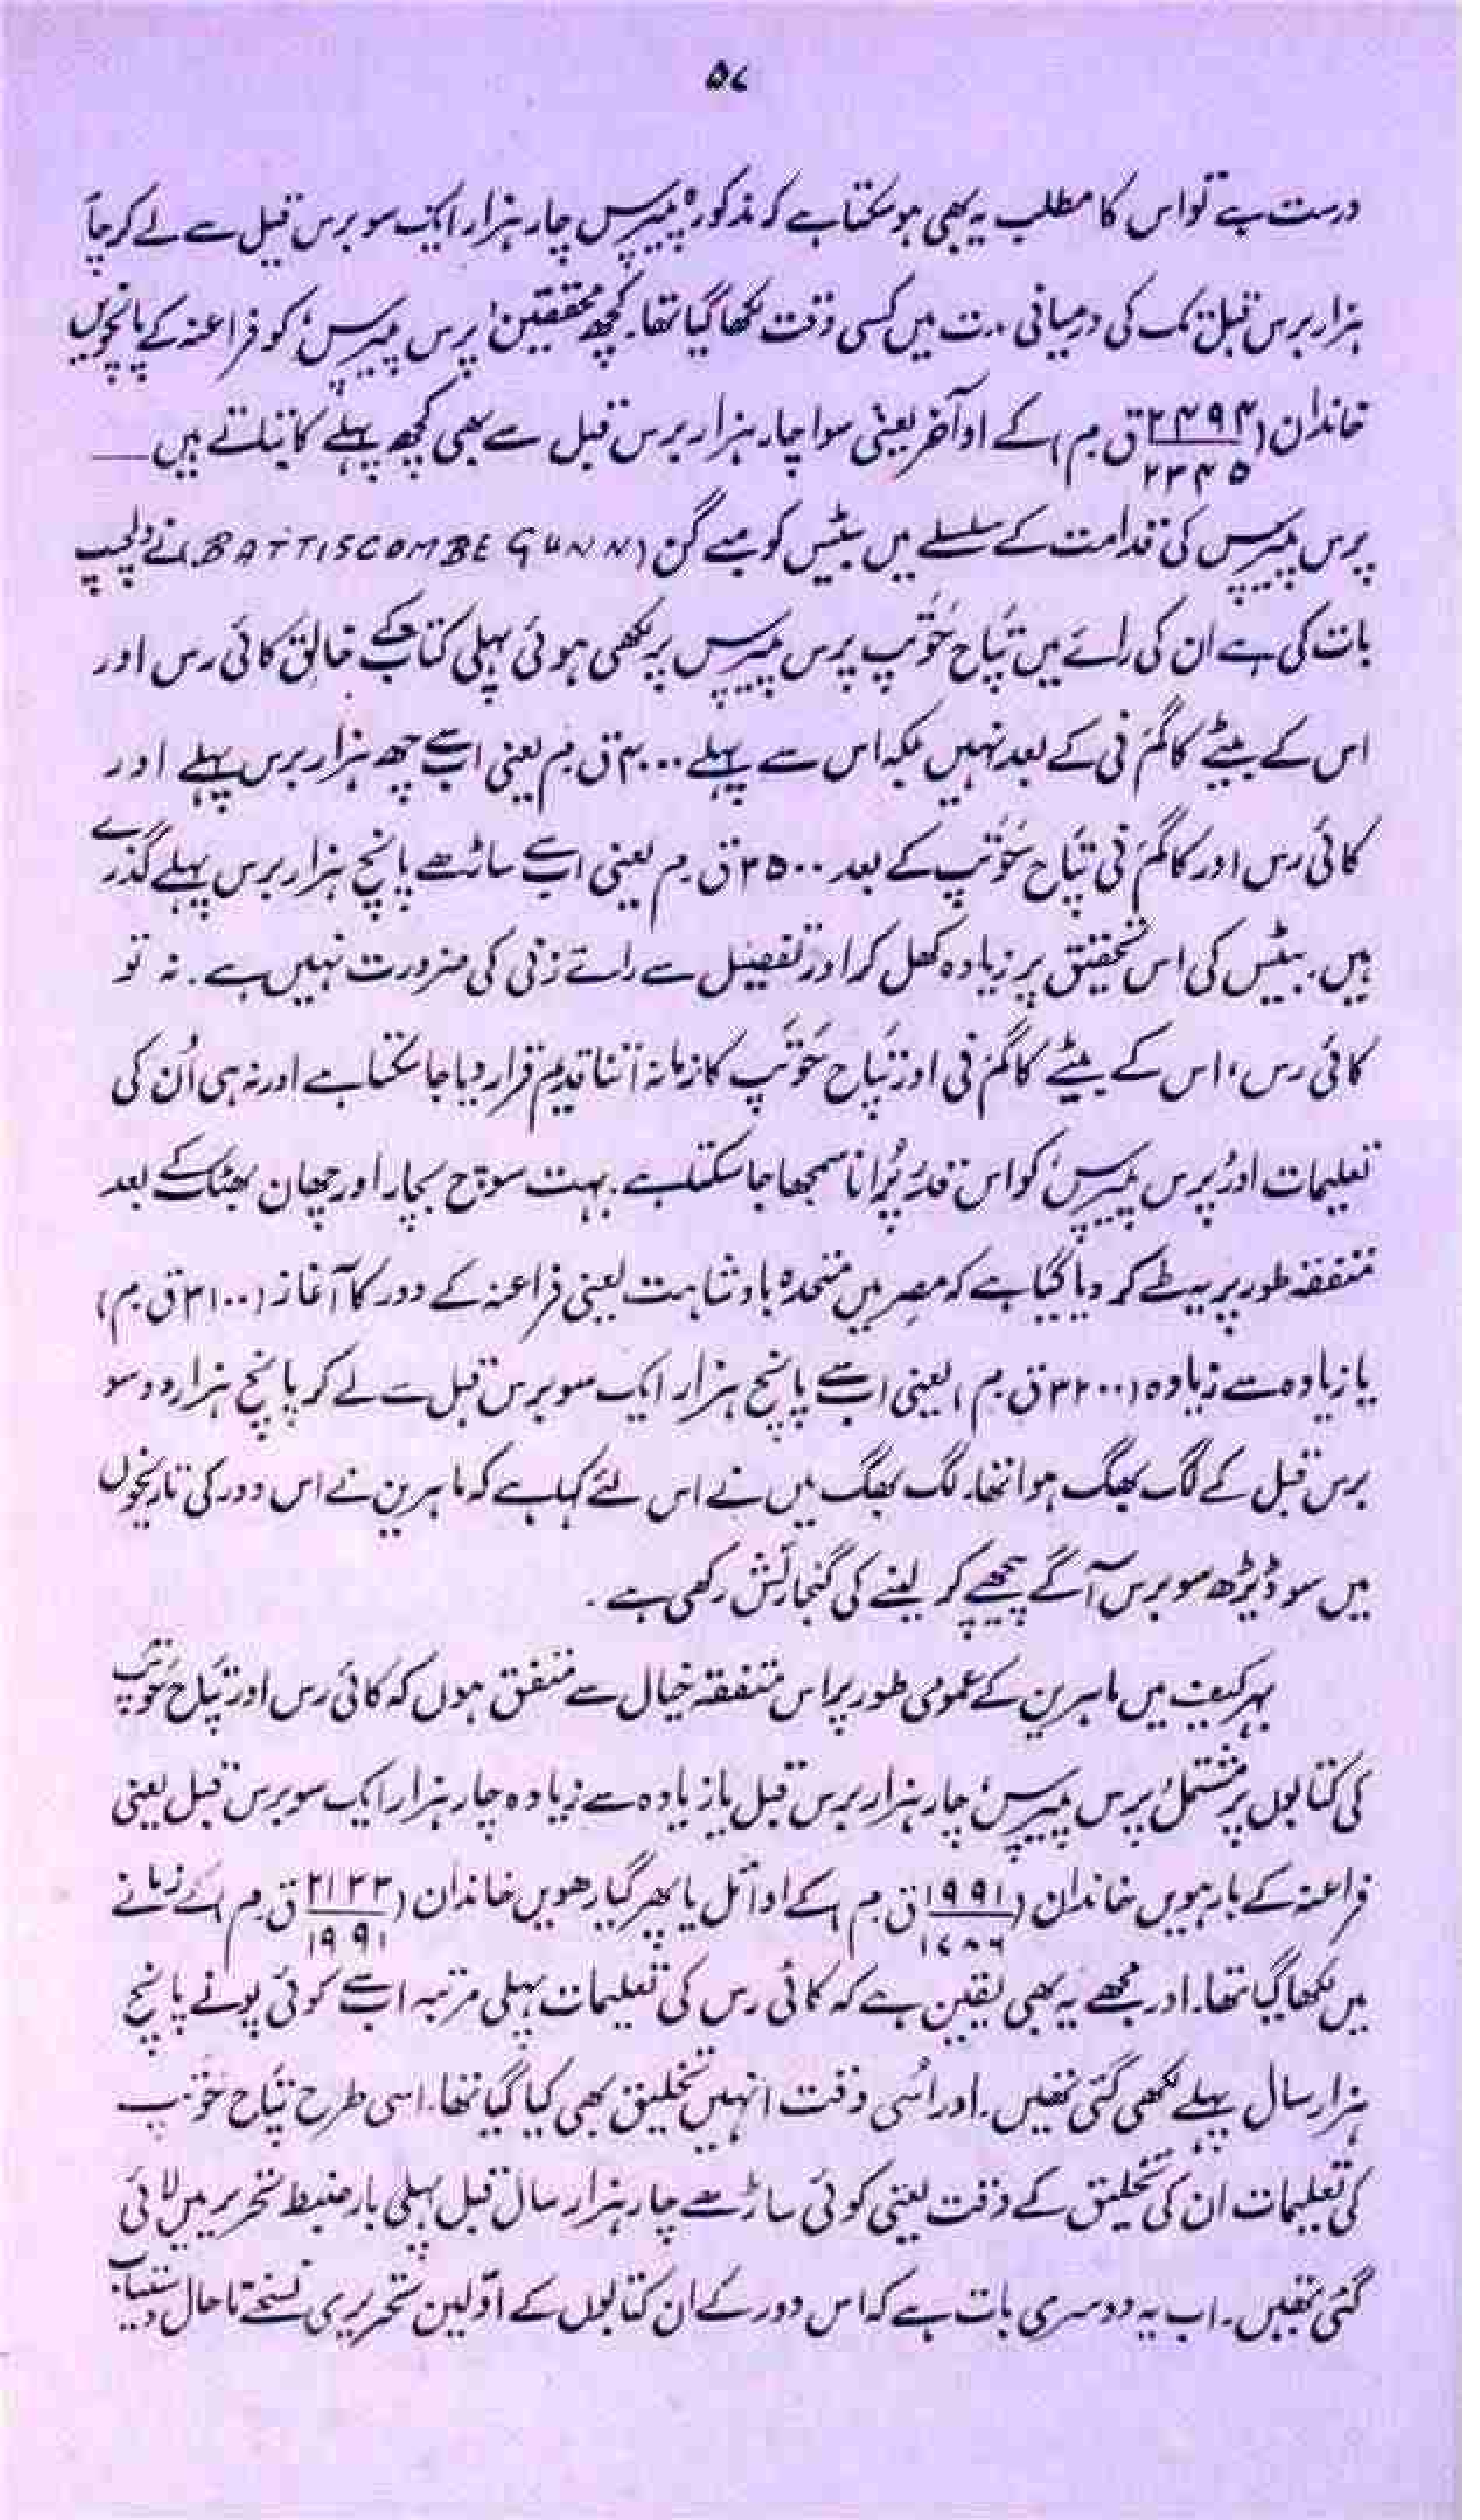 ۵۷
درست ہے تو اس کا مطلب یہ بھی ہو سکتا ہے کہ مذکورہ پیپرس چار ہزار ایک سو برس قبل سے لے کر چار
ہزار برس قبل تک کی درمیانی مدت میں کسی وقت لکھا گیا تھا۔ کچھ محققین 'پرس پیپرس' کو فراعنہ کے پانچویں
خاندان (۲۴۹۴/۲۳۴۵ ق۔م) کے اواخر یعنی سوا چار ہزار برس قبل سے بھی کچھ پہلے کا بتاتے ہیں ــــ
پرس پیپرس کی قدامت کے سلسلے میں بیٹس کومبے گن (BATTISCOMBE GUNN) نے دلچسپ
بات کی ہے ان کی رائے میں تپاح حوتپ پرس پیپرس پر لکھی ہوئی پہلی کتاب کے خالق کائی رس اور
اس کے بیٹے کاگم نی کے بعد نہیں بلکہ اس سے پہلے ۴۰۰۰ ق۔م یعنی اب سے چھ ہزار برس پہلے اور
کائی رس اور کاگم نی تپاح حوتپ کے بعد ۳۵۰۰ ق۔م یعنی اب سے ساڑھے پانچ ہزار برس پہلے گذرے
ہیں۔ بیٹس کی اس تحقیق پر زیادہ کھل کر اور تفصیل سے رائے زنی کی ضرورت نہیں ہے۔ نہ تو
کائی رس، اس کے بیٹے کاگم نی اور تپاح حوتپ کا زمانہ اتنا قدیم قرار دیا جا سکتا ہے اور نہ ہی اُن کی
تعلیمات اور 'پرس پیپرس' کو اس قدر پُرانا سمجھا جا سکتا ہے۔ بہت سوچ بچار اور چھان پھٹک کے بعد
متفقہ طور پر یہ طے کر دیا گیا ہے کہ مصر میں متحدہ بادشاہت یعنی فراعنہ کے دور کا آغاز (۳۱۰۰ ق۔م)
یا زیادہ سے زیادہ (۳۲۰۰ ق۔م) یعنی اب سے پانچ ہزار ایک سو برس قبل سے لے کر پانچ ہزار دو سو
برس قبل کے لگ بھگ ہوا تھا۔ لگ بھگ میں نے اس لئے کہا ہے کہ ماہرین نے اس دور کی تاریخوں
میں سو ڈیڑھ سو برس آگے پیچھے کر لینے کی گنجائش رکھی ہے۔
بہر کیف میں ماہرین کے عمومی طور پر اس متفقہ خیال سے متفق ہوں کہ کائی رس اور تپاح حوتپ
کی کتابوں پر مشتمل 'پرس پیپرس' چار ہزار برس قبل یا زیادہ سے زیادہ چار ہزار ایک سو برس قبل یعنی
فراعنہ کے بارہویں خاندان (۱۹۹۱/۱۷۸۶ ق۔م) کے اوائل یا پھر گیارھویں خاندان (۲۱۳۳/۱۹۹۱ ق۔م) کے زمانے
میں لکھا گیا تھا۔ اور مجھے یہ بھی یقین ہے کہ کائی رس کی تعلیمات پہلی مرتبہ اب سے کوئی پونے پانچ
ہزار سال پہلے لکھی گئی تھیں۔ اور اُسی وقت انہیں تخلیق بھی کیا گیا تھا۔ اسی طرح تپاح حوتپ
کی تعلیمات ان کی تخلیق کے وقت یعنی کوئی ساڑھے چار ہزار سال قبل پہلی بار ضبط تحریر میں لائی
گئی تھیں۔ اب یہ دوسری بات ہے کہ اس دور کے ان کتابوں کے اوّلین تحریری نسخے تاحال دستیاب